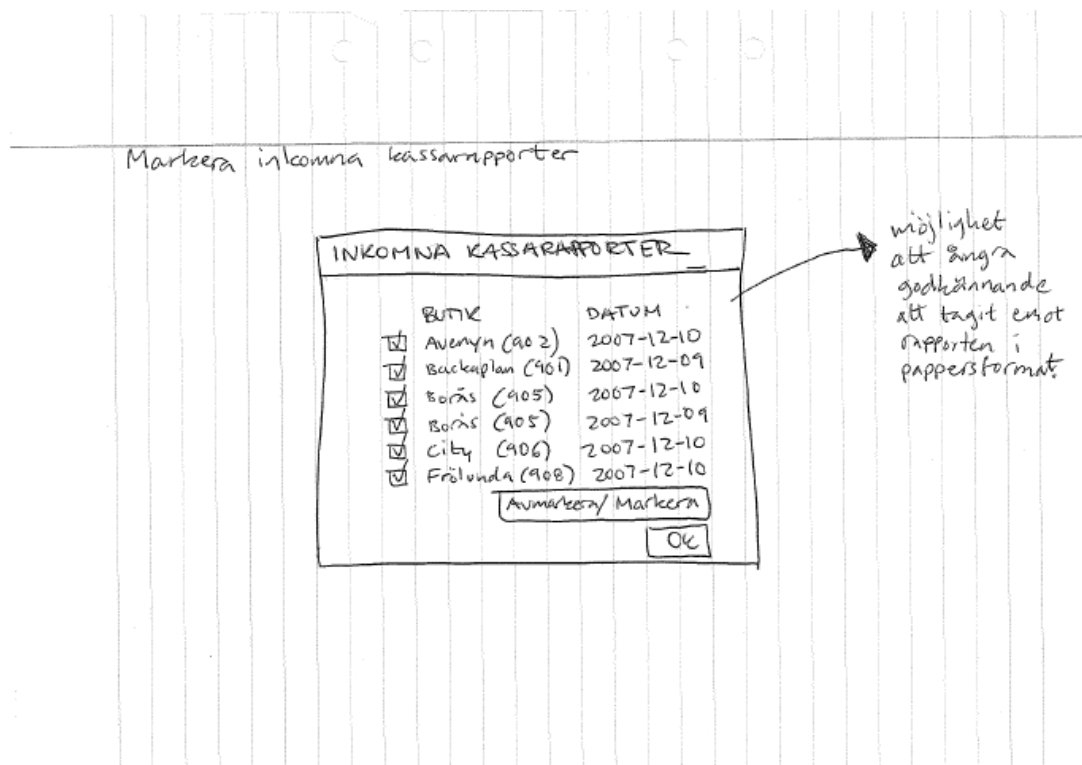 Markera inkomna kassarapporter
INKOMNA KASSARAPPORTER
BUTIK DATUM
Avenyn (902) 2007-12-10
Backaplan (901) 2007-12-09
Borås (905) 2007-12-10
Borås (905) 2007-12-09
City (906) 2007-12-10
Frölunda (908) 2007-12-10
Avmarkera/Markera
OK
möjlighet
att ångra
godkännande
att tagit emot
rapporten i
pappersformat.